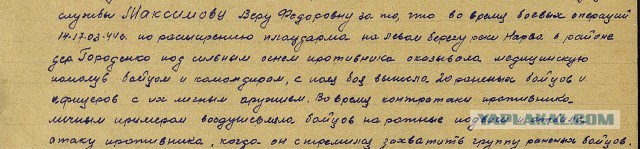 службы Максимову Веру Федоровну за то, что во время боевых операций
14-17.03.44г. по расширению плацдарма на левом берегу реки Нарва в районе
дер. Городенко под сильным огнем противника оказывала медицинскую
помощь бойцам и командирам, с поля боя вынесла 20 раненых бойцов и
офицеров с их личным оружием. Во время контратаки противника
личным примером воодушевляла бойцов на ратные
атаку противника, когда он стремился захватить группу раненых бойцов.
YAPLAKAL.COM